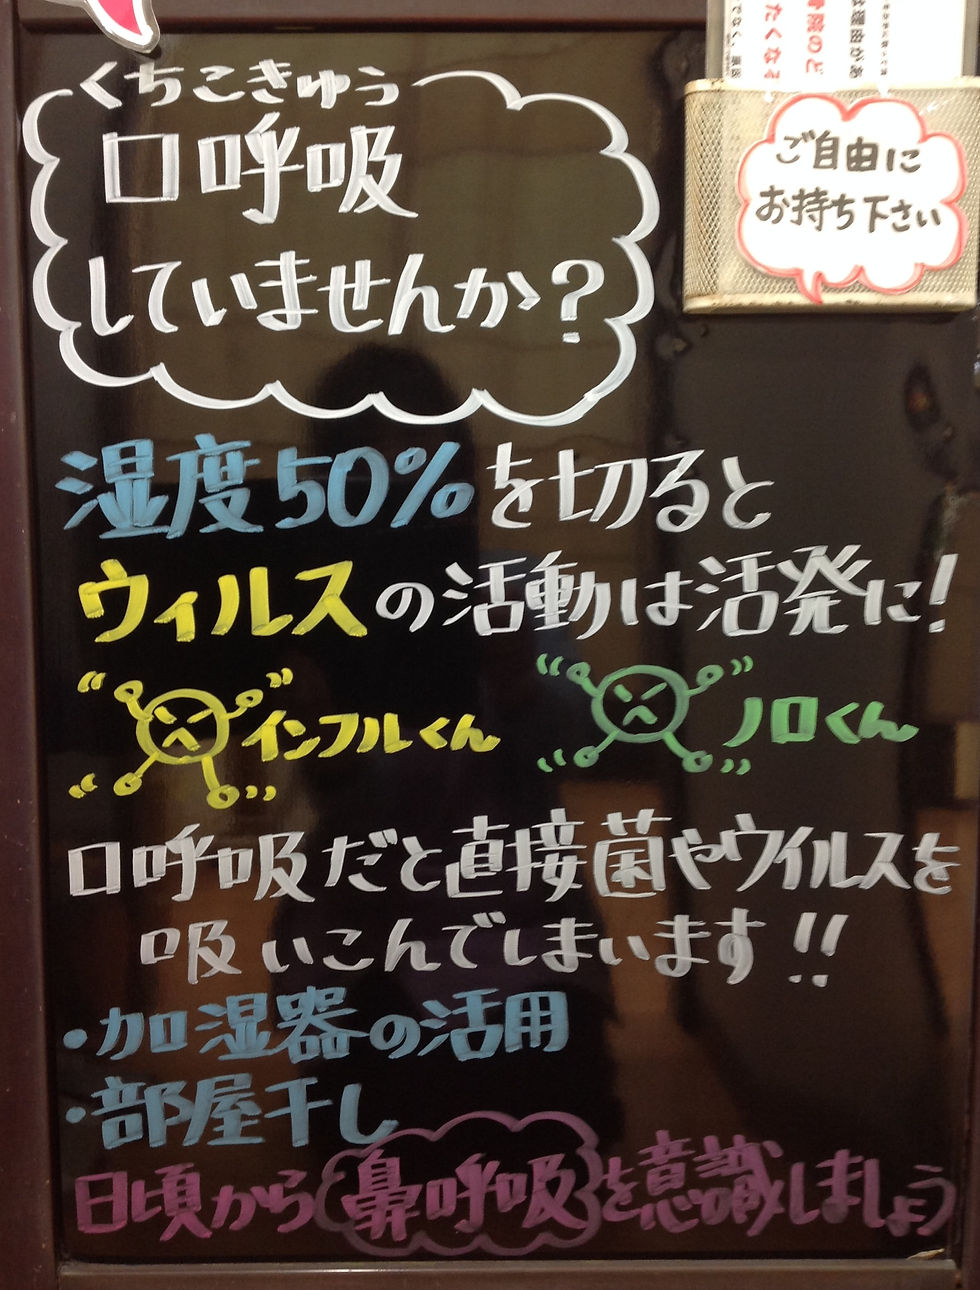 くちこきゅう
口呼吸
していませんか?
ご自由に
お持ち下さい
湿度50%を切ると
ウィルスの活動は活発に!
インフルくん
ノロくん
口呼吸だと直接菌やウイルスを
吸いこんでしまいます!!
・加湿器の活用
・部屋干し
日頃から鼻呼吸を意識しましょう